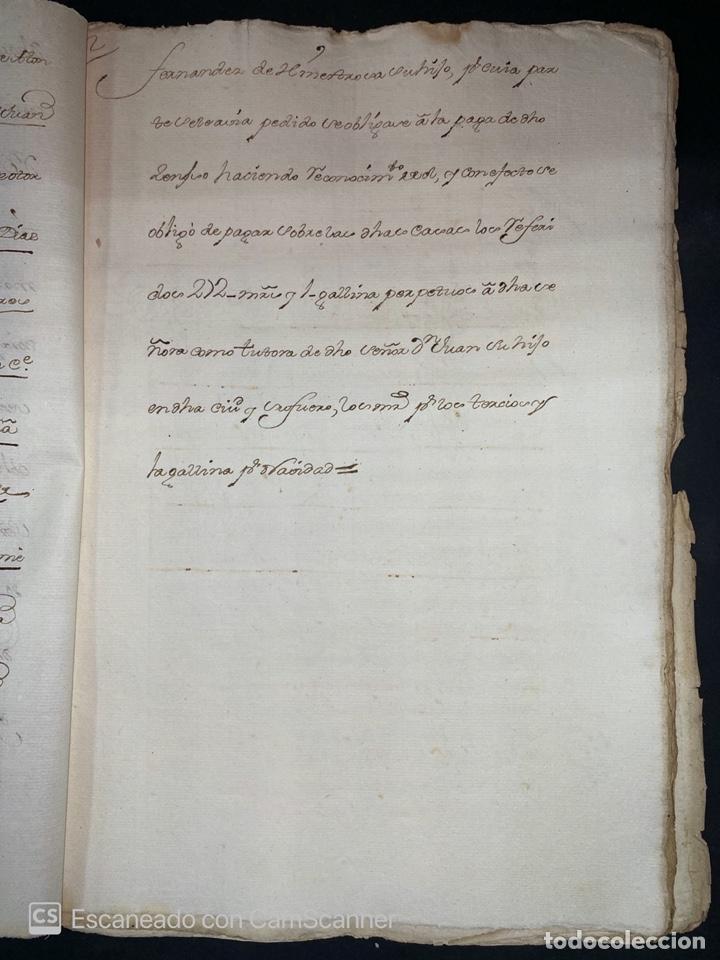 Fernandez de Hinestrosa su hijo, pr cuia par
te se le avia pedido se obligase â la paga de dho
Zenso haciendo Reconocimto del, y con efecto se
obligó de pagar sobre las dhas casas los Referi
dos 212 mrs y 1 gallina perpetuos â dha se
ñora como tutora de dho señor Dn Juan su hijo
en dha ciud y su fuero, los mrs pr los tercios y
la gallina pr Navidad =
Juan
Dias
CS Escaneado con CamScanner
todocoleccion